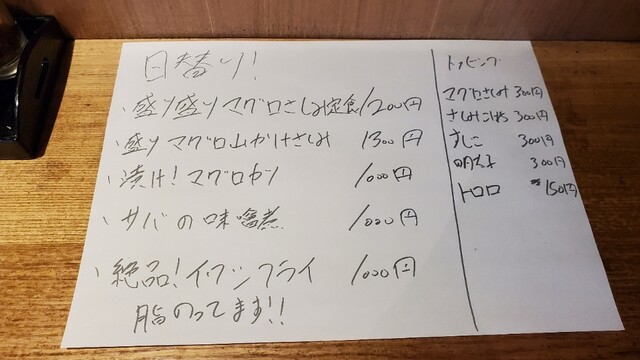 日替り!
、盛り盛りマグロさしみ定食 1200円
、盛りマグロ山かけさしみ 1300円
、漬け!マグロカツ 1000円
、サバの味噌煮 1000円
、絶品!イワシフライ 1000円
脂のってます!!
トッピング
マグロさしみ 300円
さしみ 300円
すじこ 300円
明太子 300円
トロロ 150円